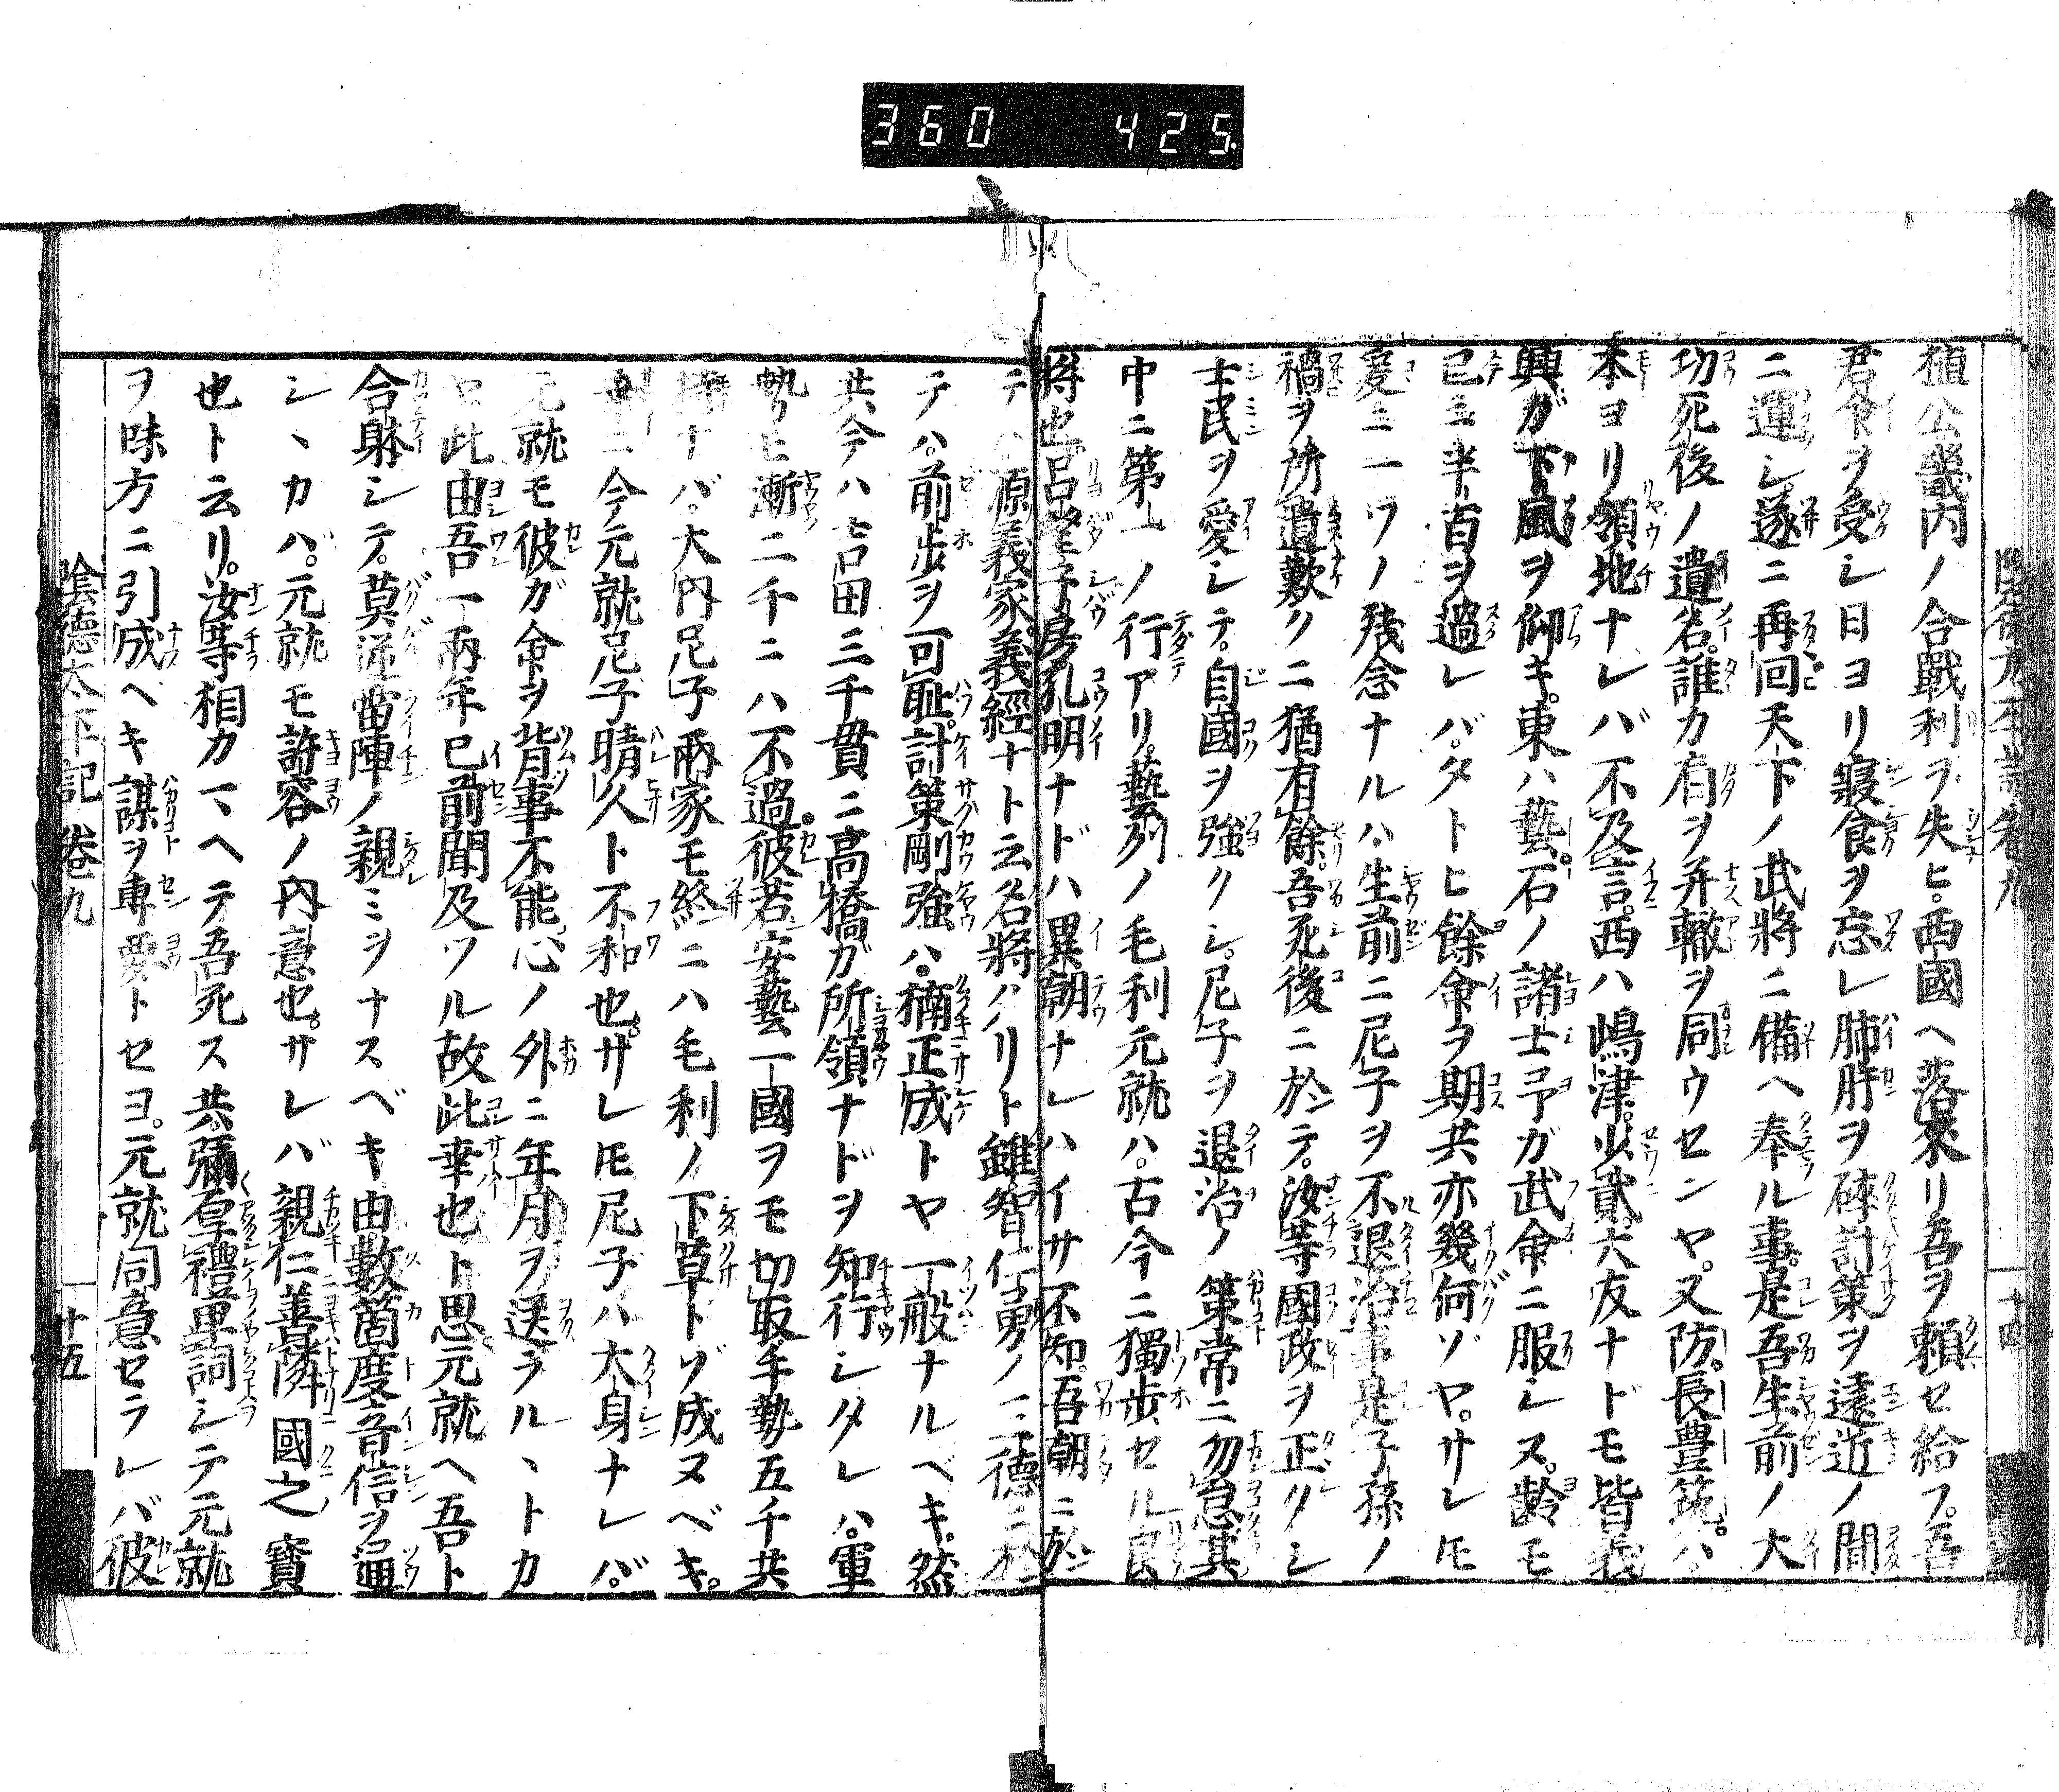 360 425
陰德太平記卷九
十四
植公畿内ノ合戰利ヲ失ヒ。西國ヘ落來リ吾ヲ頼セ給フ。吾
君命ヲ受シ日ヨリ寢食ヲ忘レ肺肝ヲ碎計策ヲ遠近ノ間
ニ運シ。遂ニ再回天下ノ武將ニ備ヘ奉ル事。是吾生前ノ大
功死後ノ遺名。誰カ肩ヲ幷轍ヲ同ウセンヤ。又防、長豊筑。ハ
本ヨリ領地ナレバ不及言。西ハ嶋津。少貳。大友ナドモ皆義
興ガ下風ヲ仰キ。東ハ藝。石ノ諸士予ガ武命ニ服シヌ。齡モ
已ニ半百ヲ過レバ。タトヒ餘命ヲ期共亦幾何ゾヤ。サレ𪜈
爰ニ一ツノ殘念ナルハ。生前ニ尼子ヲ不退治事是子孫ノ
禍ヲ所遺歎クニ猶有餘。吾死後ニ於テ。汝等國政ヲ正リシ
士民ヲ愛シテ。自國ヲ強クシ。尼子ヲ退治ノ策常ニ勿怠其
中ニ第一ノ行アリ。藝州ノ毛利元就ハ。古今ニ獨歩セル良
將也。呂望子房孔明ナドハ異朝ナレハイサ不知。吾朝ニ於
テハ源義家。義經ナト云名將ハアリト雖智仁勇ノ三德ニ於
テハ。前歩ヲ可耻。計策剛強ハ。楠正成トヤ一般ナルヘキ。然
共今ハ吉田三千貫ニ高橋ガ所領ナドヲ知行シタレハ。軍
勢ワヒ漸二千ニハ不過。彼若安藝一國ヲモ切取手勢五千共
持ナバ。大内尼子兩家モ終ニハ毛利ノ下草トゾ成ヌベキ。
幸ニ今元就尼子晴久ト不和也。サレ𪜈尼子ハ大身ナレバ。
元就モ彼ガ命ヲ背事不能。心ノ外ニ年月ヲ送ラルヽトカ
ヤ。此由吾一兩年已前聞及ツル故此幸也ト思元就ヘ吾ト
合躰シテ。莫逆雷陣ノ親ミヲナスベキ由。數箇度音信ヲ通
シヽカバ。元就モ許容ノ内意也。サレバ親仁善隣國之寳
也ト云リ。汝等相カマヘテ吾死ス共。彌厚禮卑詞シテ元就
ヲ味方ニ引成ヘキ謀ヲ専要トセヨ。元就同意セラレバ彼
陰德太平記卷九
十五